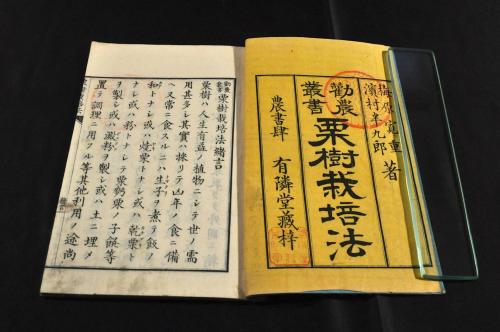 梅原寛重
濱村半九郎 著
勸農
叢書
栗樹栽培法
農書肆 有隣堂藏梓
勸農叢書 栗樹栽培法緒言
栗樹ハ人生有益ノ植物ニシテ世ノ需
用甚多シ其實ハ採リテ凶年ノ食ニ備
ヘ又常ニ食スルニハ生子ヲ煮テ飯ノ
和トナシ或ハ燒栗トナシ或ハ乾栗ト
ヲ製シ或ハ粉トナシテ栗麪栗ノ子餻等
ヲ製シ或ハ澱粉ヲ製シ或ハ土ニ埋メ
置テ調理ニ用フル等其他利用ノ途尚